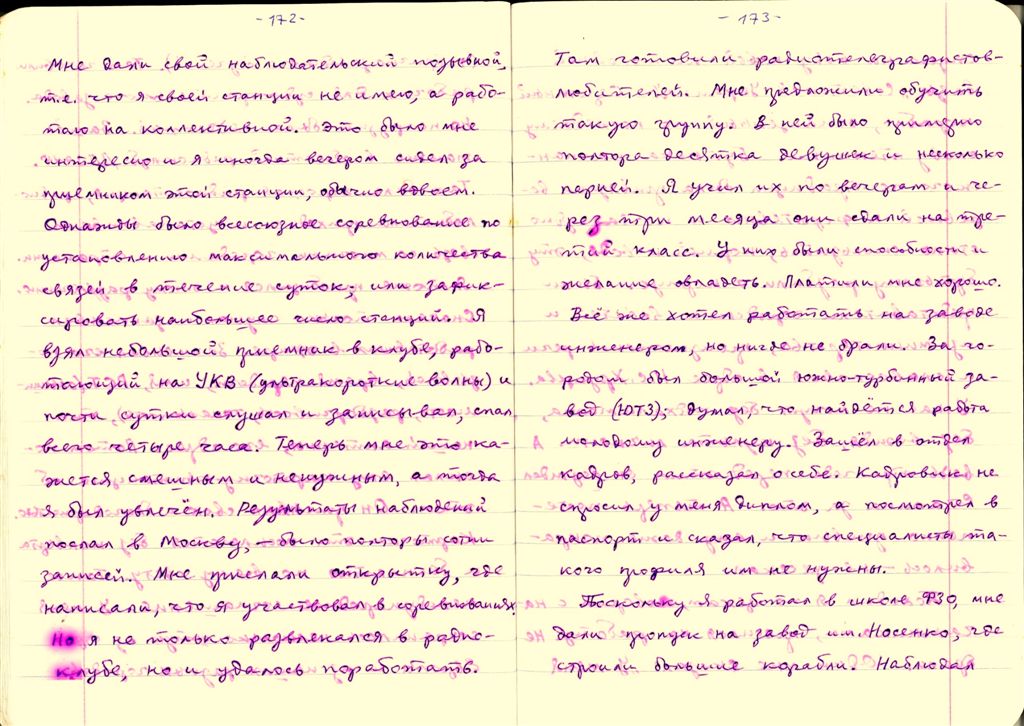 -172-
Мне дали свой наблюдательский позывной,
т.е. что я своей станции не имею, а рабо-
таю на коллективной. Это было мне
интересно и я иногда вечером сидел за
приёмником этой станции, обычно вдвоём.
Однажды было всесоюзное соревнование по
установлению максимального количества
связей в течение суток, или зафик-
сировать наибольшее число станций. Я
взял небольшой приемник в клубе, рабо-
тающий на УКВ (ультракороткие волны) и
почти сутки слушал и записывал, спал
всего четыре часа. Теперь мне это ка-
жется смешным и ненужным, а тогда
я был увлечён. Результаты наблюдений
послал в Москву, — было полторы сотни
записей. Мне прислали открытку, где
написали, что я участвовал в соревнованиях.
Но я не только развлекался в радио-
клубе, но и удалось поработать.
-173-
Там готовили радиотелеграфистов-
любителей. Мне предложили обучить
такую группу. В ней было примерно
полтора десятка девушек и несколько
парней. Я учил их по вечерам и че-
рез три месяца они сдали на тре-
тий класс. У них были способности и
желание овладеть. Платили мне хорошо.
Всё же хотел работать на заводе
инженером, но нигде не брали. За го-
родом был большой южно-турбинный за-
вод (ЮТЗ); думал, что найдётся работа
молодому инженеру. Зашёл в отдел
кадров, рассказал о себе. Кадровик не
спросил у меня диплом, а посмотрел в
паспорт и сказал, что специалисты та-
кого профиля им не нужны.
Поскольку я работал в школе ФЗО, мне
дали пропуск на завод им. Носенко, где
строили большие корабли. Наблюдал